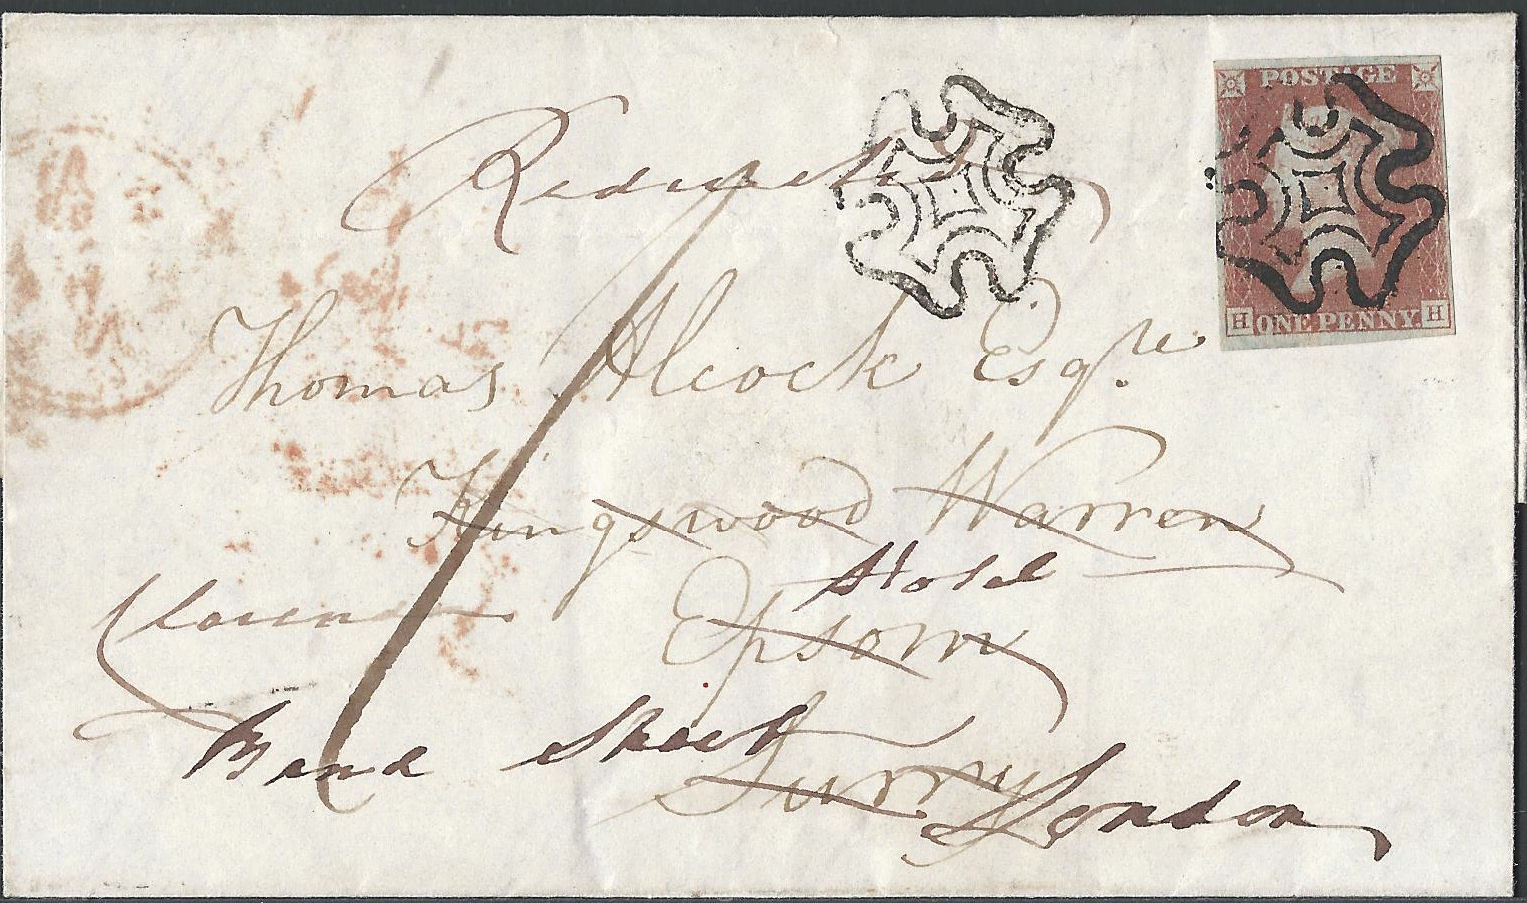 Redirected
POSTAGE
H ONE PENNY. H
Thomas Alcock Esqre
Kingswood Warren
Epsom
Surry
Clarendon Hotel
Bond Street
London